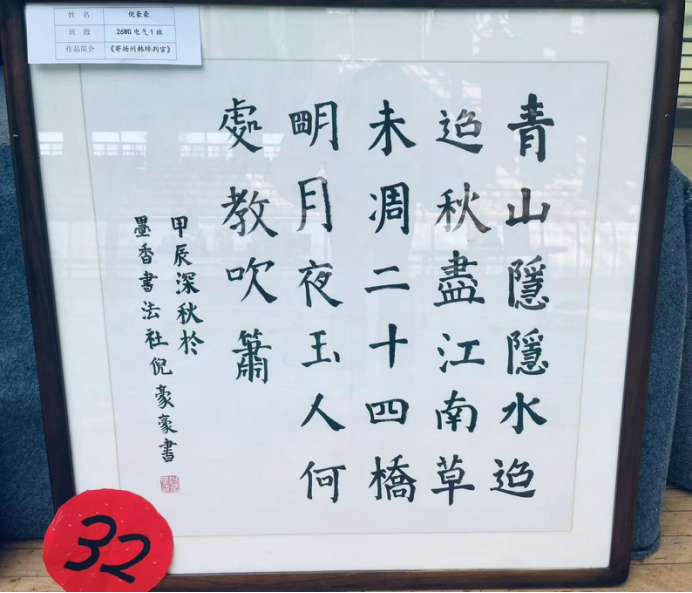 姓 名 倪豪豪
班 级 26WG电气1班
作品简介 《寄扬州韩绰判官》
青山隱隱水迢
迢秋盡江南草
未凋二十四橋
明月夜玉人何
處教吹簫
甲辰深秋於
墨香書法社倪豪豪書
32